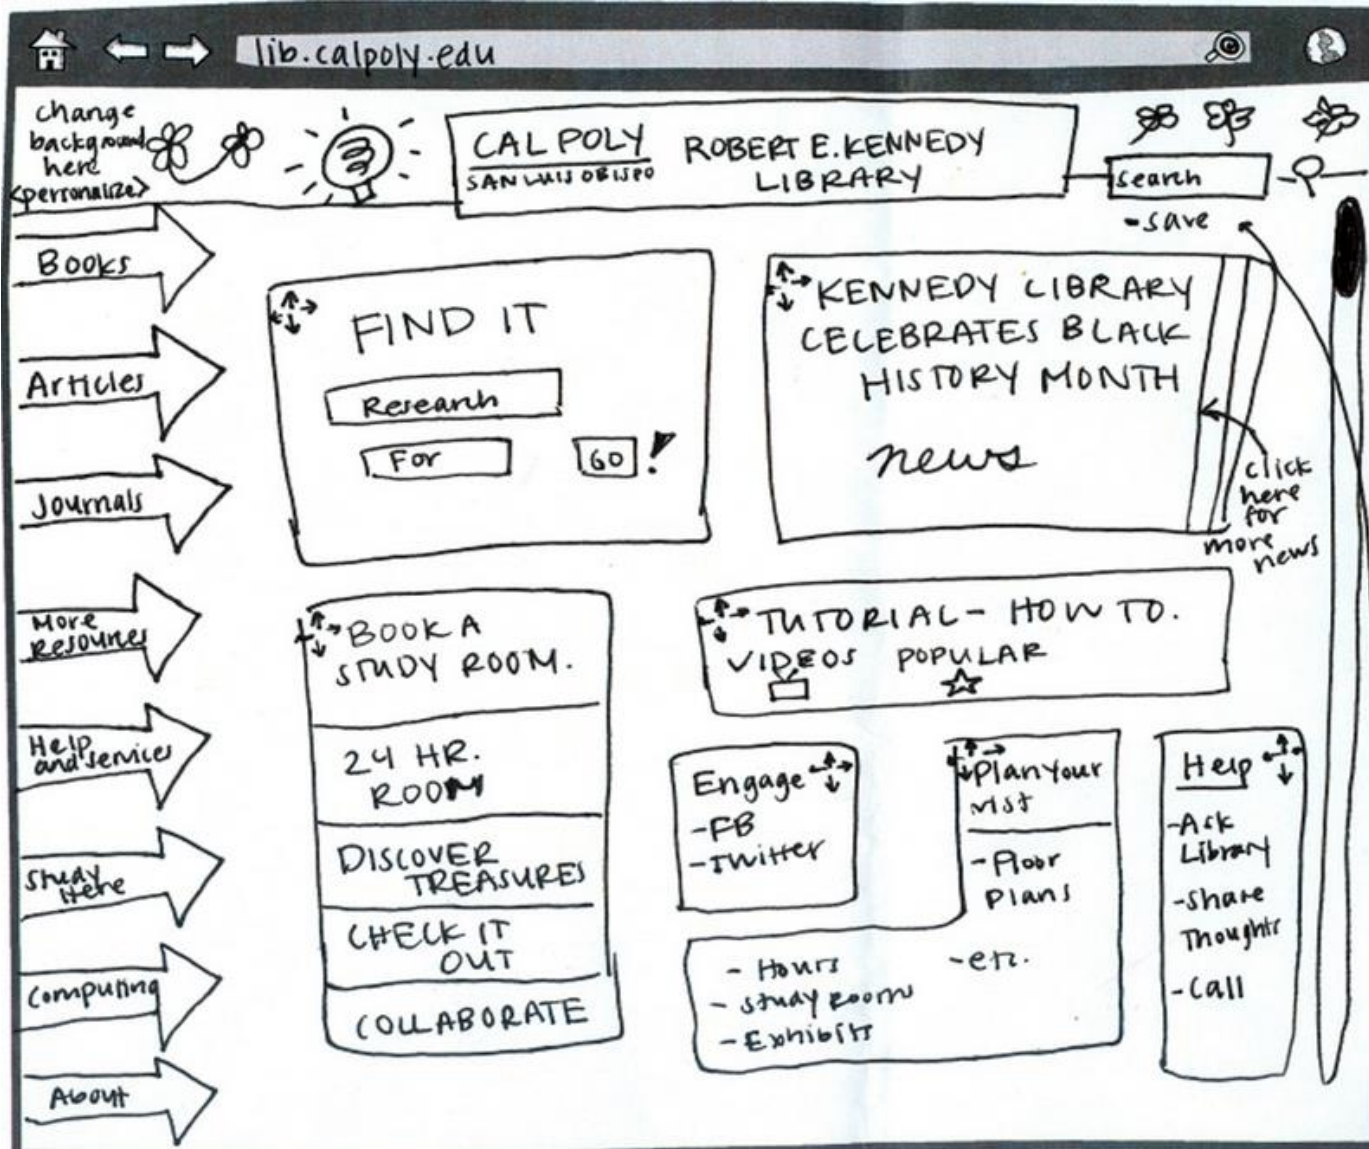 lib.calpoly.edu
change
background
here
<personalize>
CAL POLY
SAN LUIS OBISPO
ROBERT E. KENNEDY
LIBRARY
search
-save
Books
Articles
Journals
More
Resources
Help
and services
Study
Here
Computing
About
FIND IT
Research
For
GO!
KENNEDY LIBRARY
CELEBRATES BLACK
HISTORY MONTH
news
click
here
for
more
news
BOOK A
STUDY ROOM.
24 HR.
ROOM
DISCOVER
TREASURES
CHECK IT
OUT
COLLABORATE
TUTORIAL - HOW TO.
VIDEOS POPULAR
Engage
-FB
-Twitter
Plan Your
vist
-Floor
Plans
-etc.
- Hours
- study rooms
- Exhibits
Help
-Ask
Library
-Share
Thoughts
-Call